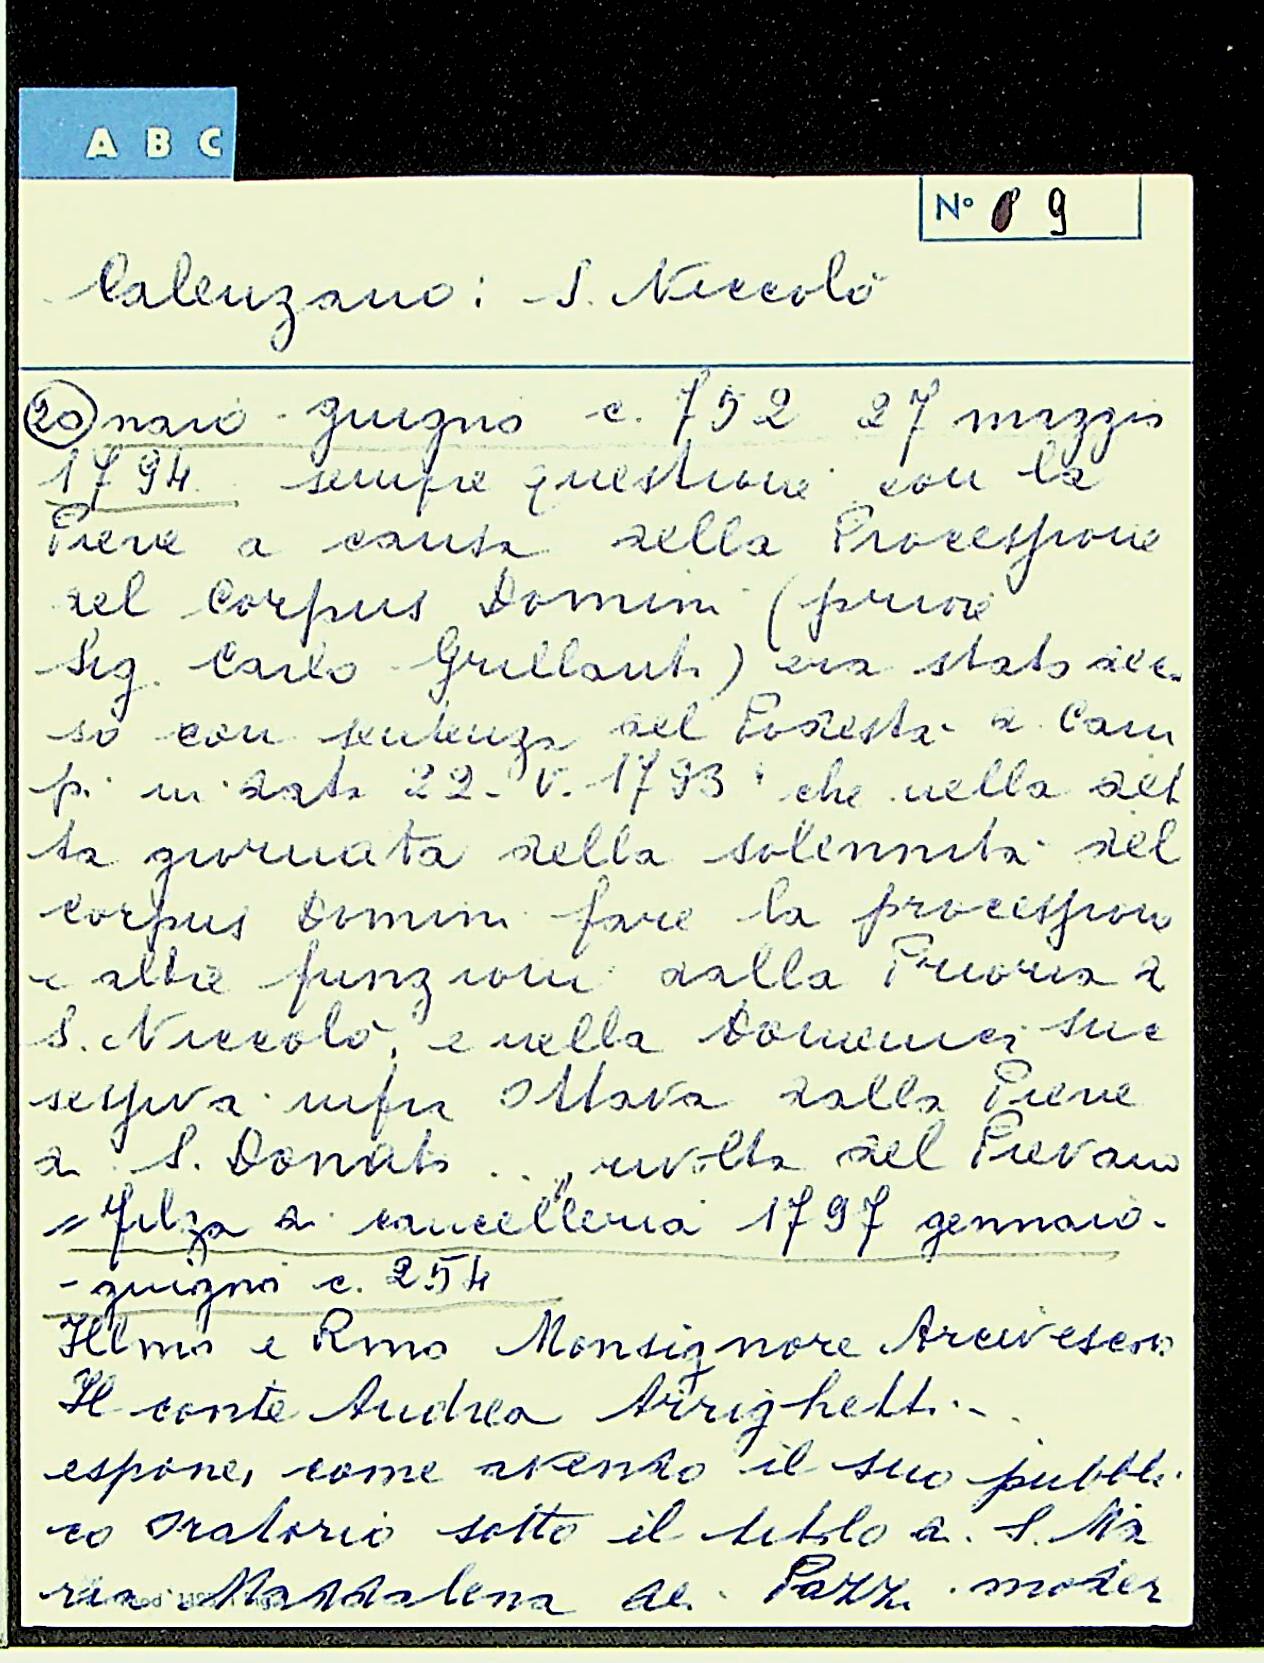 A B C
Nº 9
Calenzano: S. Niccolò
20 naio-giugno c. 752 27 maggio
1794 sempre questione con la
Pieve a causa della Processione
del Corpus Domini (priore
Sig. Carlo Grillanti) era stato dec.
so con sentenza del Podestà di Cam
pi in data 22-V-1793 che nella det
ta giornata della solennità del
Corpus Domini fare la processione
e altre funzioni dalla Prioria di
S. Niccolò, e nella Domenica suc
cessiva infra Ottava dalla Pieve
di S. Donato ... rivolta del Pievano
= Filza di cancelleria 1797 gennaio-
- giugno c. 254
Illmo e Rmo Monsignore Arcivescovo
Il conte Andrea Arrighetti...
espone, come avendo il suo pubbli
co Oratorio sotto il titolo di S. Ma
ria Maddalena de' Pazzi moder